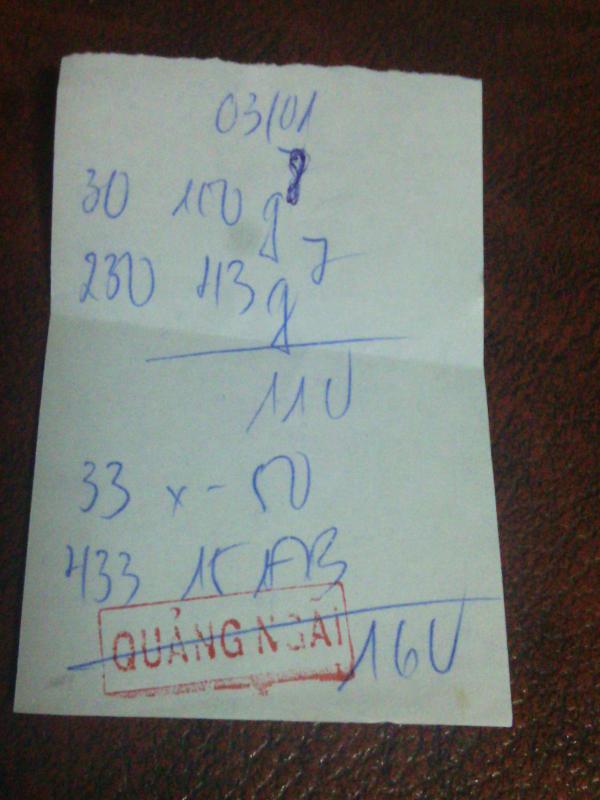 03/01
30 110 g 8
230 113 g 7
11U
33 x - 50
433 15 1AB
QUẢNG NGÃI
16U